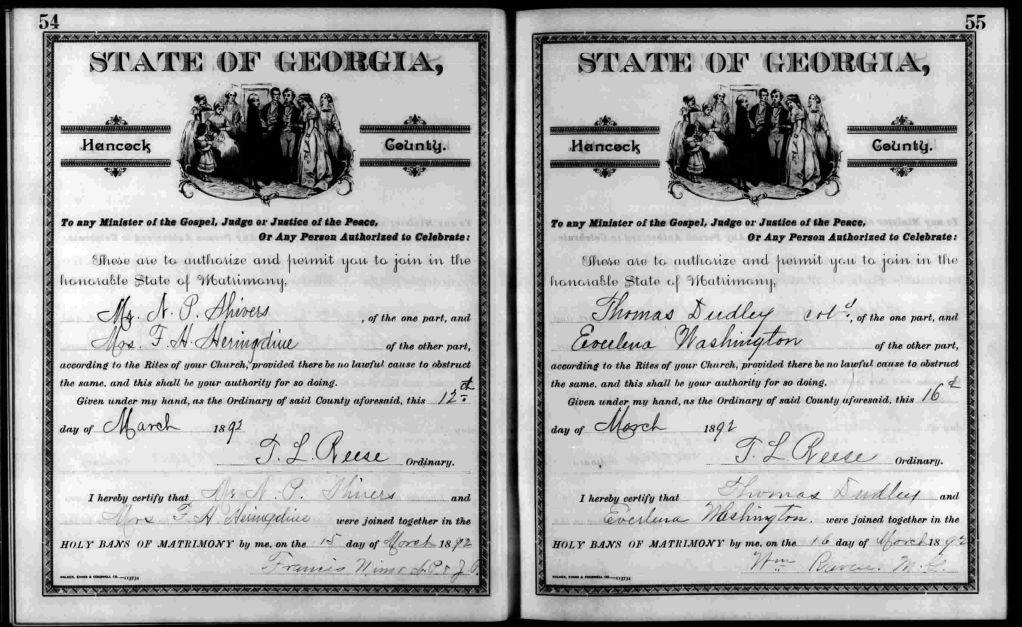 54
STATE OF GEORGIA,
Hancock County.
To any Minister of the Gospel, Judge or Justice of the Peace,
Or Any Person Authorized to Celebrate:
These are to authorize and permit you to join in the
honorable State of Matrimony,
Mr. N. P. Shivers, of the one part, and
Mrs. F. H. of the other part,
according to the Rites of your Church, provided there be no lawful cause to obstruct
the same, and this shall be your authority for so doing.
Given under my hand, as the Ordinary of said County aforesaid, this 12th
day of March 1892
T. L. Reese Ordinary.
I hereby certify that Mr. N. P. Shivers and
Mrs. F. H. were joined together in the
HOLY BANS OF MATRIMONY by me, on the 15 day of March 1892
Francis
55
STATE OF GEORGIA,
Hancock County.
To any Minister of the Gospel, Judge or Justice of the Peace,
Or Any Person Authorized to Celebrate:
These are to authorize and permit you to join in the
honorable State of Matrimony,
Thomas Dudley cold, of the one part, and
Everlena Washington of the other part,
according to the Rites of your Church, provided there be no lawful cause to obstruct
the same, and this shall be your authority for so doing.
Given under my hand, as the Ordinary of said County aforesaid, this 16th
day of March 1892
T. L. Reese Ordinary.
I hereby certify that Thomas Dudley and
Everlena Washington. were joined together in the
HOLY BANS OF MATRIMONY by me, on the 16 day of March 1892
Wm M. G.